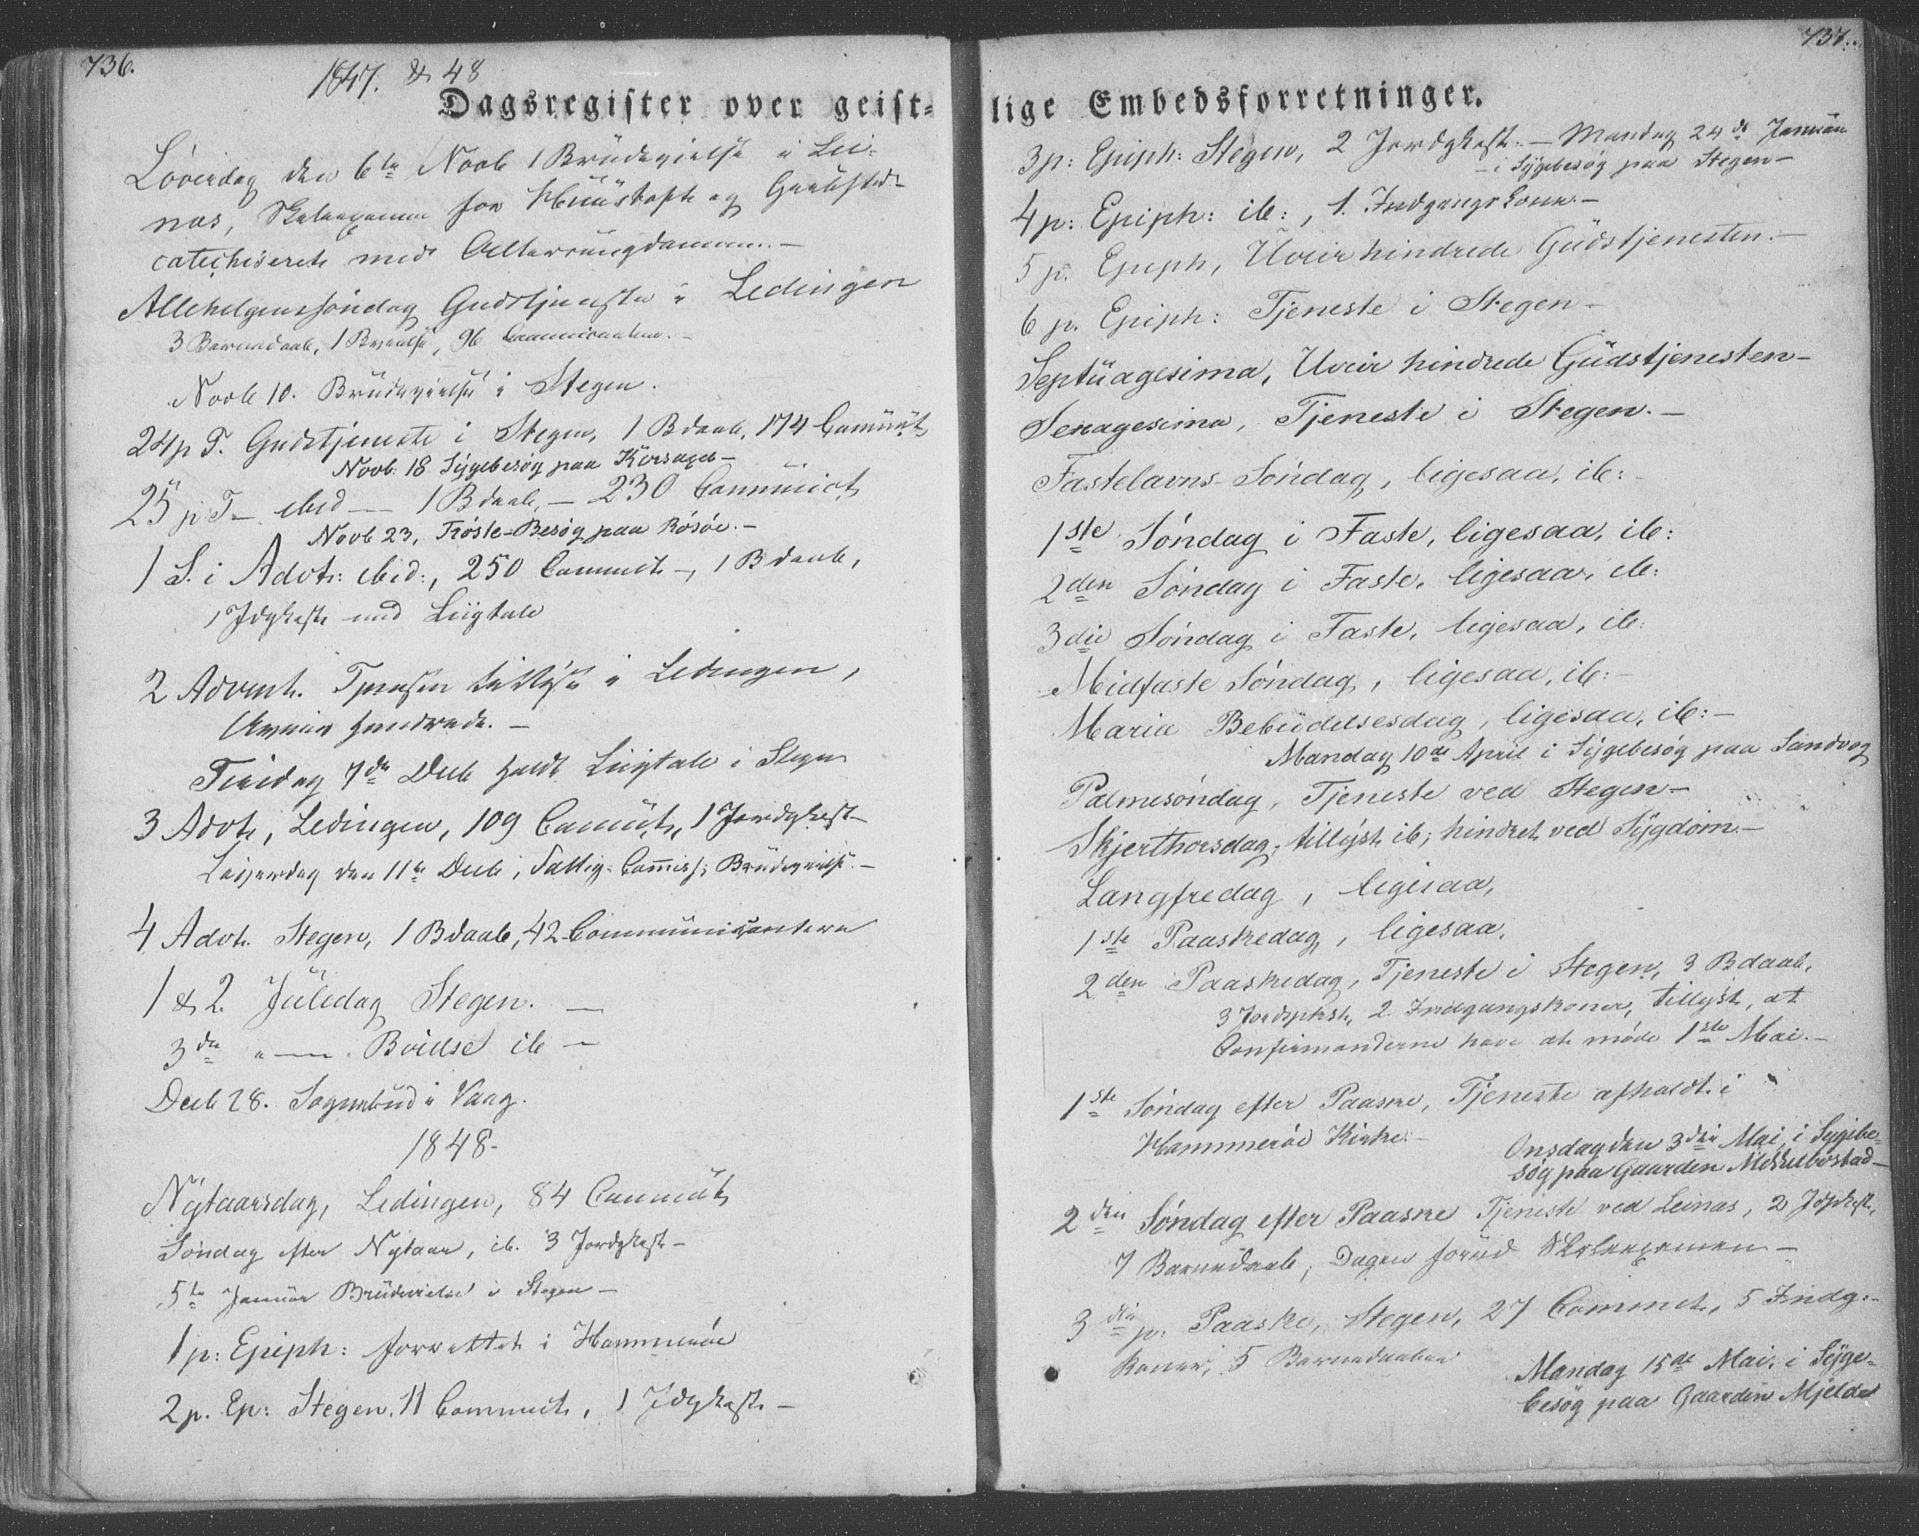 736.
1847. & 48
Dagsregister over geist-
Løverdag den 6te Novb 1 Brüdevielse i Lei-
nes, Skoleexamen for
catechiserete med Almueungdommen.-
Allehelgenssøndag Gudstjeneste i Ledingen
3 Barnedaab, 1 Brvielse, 96 Communicanter.-
Novb 10. Brüdevielse i Stegen.
24 p T. Gudstjeneste i Stegen, 1 Bdaab, 174 Com̄ünt,
Novb. 18 Sÿgebesøg paa
25 p T- ibid - 1 Bdaab, - 230 Commūict,
Novb 23, Trøste-Besøg paa Røsøe.-
1 S. i Advt: ibid:, 250 Commct-, 1 Bdaab,
1 Jdpkast. med Liigtale
2 Advent. Tjenesten tillÿst i Ledingen,
Uveier hindrede.-
Tirsdag 7de Decb holdt Liigtale i Stegen
3 Advt, Ledingen, 109 Com̄ünt, 1 Jordpkast-
Løverdag den 11te Decb, Fattig-Com̄iss: Brüdevielse.-
4 Advt. Stegen, 1 Bdaab, 42 Communicantere
1 & 2. Jüledag Stegen. -
3die "- ib -
Decb 28. Sognebud i Vaag.
1848-
Nÿtaarsdag, Ledingen, 84 Com̄ünt,
Søndag efter Nÿtaar, ib. 3 Jordpkast-
5te Januar Brüdevielse i Stegen-
1 p: Epiph: forrettet i Hammerøe
2 p. Ep: Stegen, 11 Commct, 1 Jdpkast.-
737.
lige Embedsforretninger.
3 p: Epiph: Stegen, 2 Jordpkast.- Mandag 24de Januar
- i Sÿgebesøg paa Stegen-
4 p: Epiph: ib:, 1. Indgangskone-
5 p. Epiph, Uveir hindrede Güdstjenesten.-
6 p. Epiph: Tjeneste i Stegen-
Septüagesima, Uveir hindrede Güdstjenesten-
Sexagesima, Tjeneste i Stegen.-
Fastelavns-Søndag, ligesaa, ib:
1ste Søndag i Faste, ligesaa, ib:
2den Søndag i Faste, ligesaa, ib:
3die Søndag i Faste, ligesaa, ib:
Midfaste Søndag, ligesaa, ib:-
Mariæ Bebüdelsesdag, ligesaa, ib:-
Mandag 10de April i Sÿgebesøg paa Sandvog
Palmesøndag, Tjeneste ved Stegen-
Skjerthorsdag, tillÿst ib; hindret ved Sÿgdom-
Langfredag, ligesaa,
1ste Paaskedag, ligesaa,
2den Paaskedag, Tjeneste i Stegen, 3 Bdaab,
3 Jordpkst, 2. Indgangskoner, tillÿst, at
Confirmanderne have at møde 1ste Mai.-
1ste Søndag efter Paaske, Tjeneste afholdt i
Hammerøe Kirke.-
Onsdag den 3die Mai, i Sygebe-
søg paa Gaarden Mikkelbostad-
2den Søndag efter Paaske Tjeneste ved Leinas, 2 Jdpkast,
7 Barnedaab, Dagen forud Skoleexamen-
3die p: Paaske, Stegen, 27 Commct, 5 Indg:-
koner, 5 Barnedaaber
Mandag 15de Mai, i Sÿge-
besøg paa Gaarden Mjelde